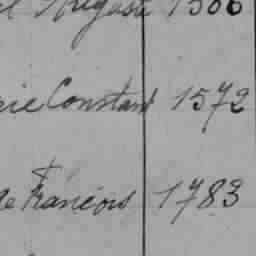 August 1506
rie Constant 1572
de François 1783